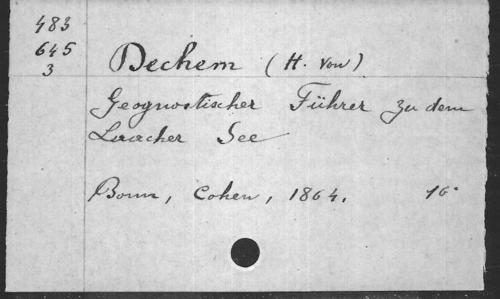 483
645
3
Dechem (H. von)
Geognostischer Führer zu dem
Laacher See
Bonn, Cohen, 1864. 16°